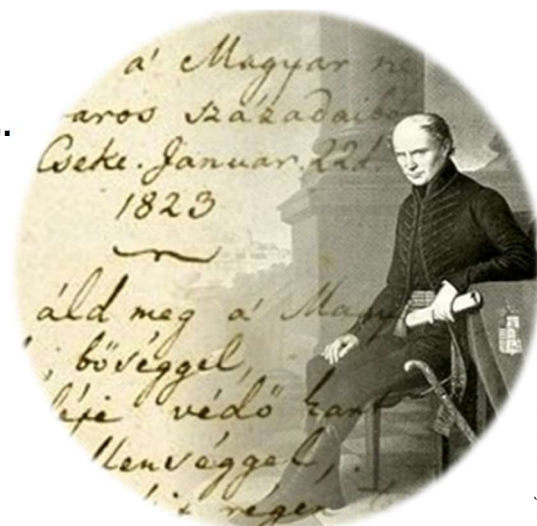 a' Magyar ne
aros századaibó
Cseke. Januar. 22d.
1823
áld meg a' Magy
bőséggel,
védő kart
llenséggel,
régen